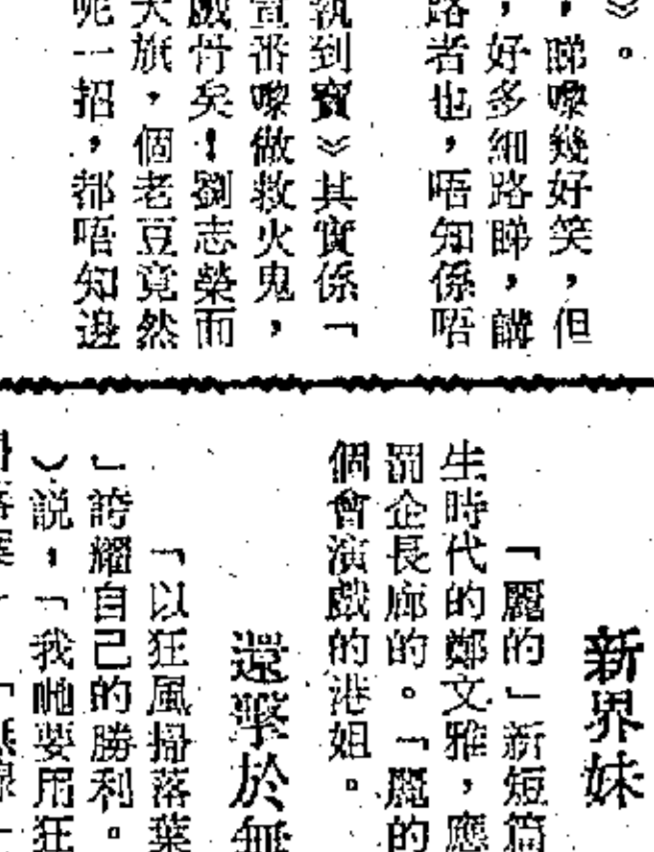 》。
，睇嚟幾好笑，但
，好多細路睇，講
路者也，唔知係唔
執到寶》其實係「
宣番嚟做救火鬼，
戲骨矣！劉志榮而
大旗，個老豆竟然
呢一招，都唔知邊
新界妹
「麗的」新短篇
生時代的鄭文雅，應
罰企長廊的。「麗的
個會演戲的港姐。
還擊於無
「以狂風掃落葉
」誇耀自己的勝利。
）説，「我哋要用狂
掃落葉